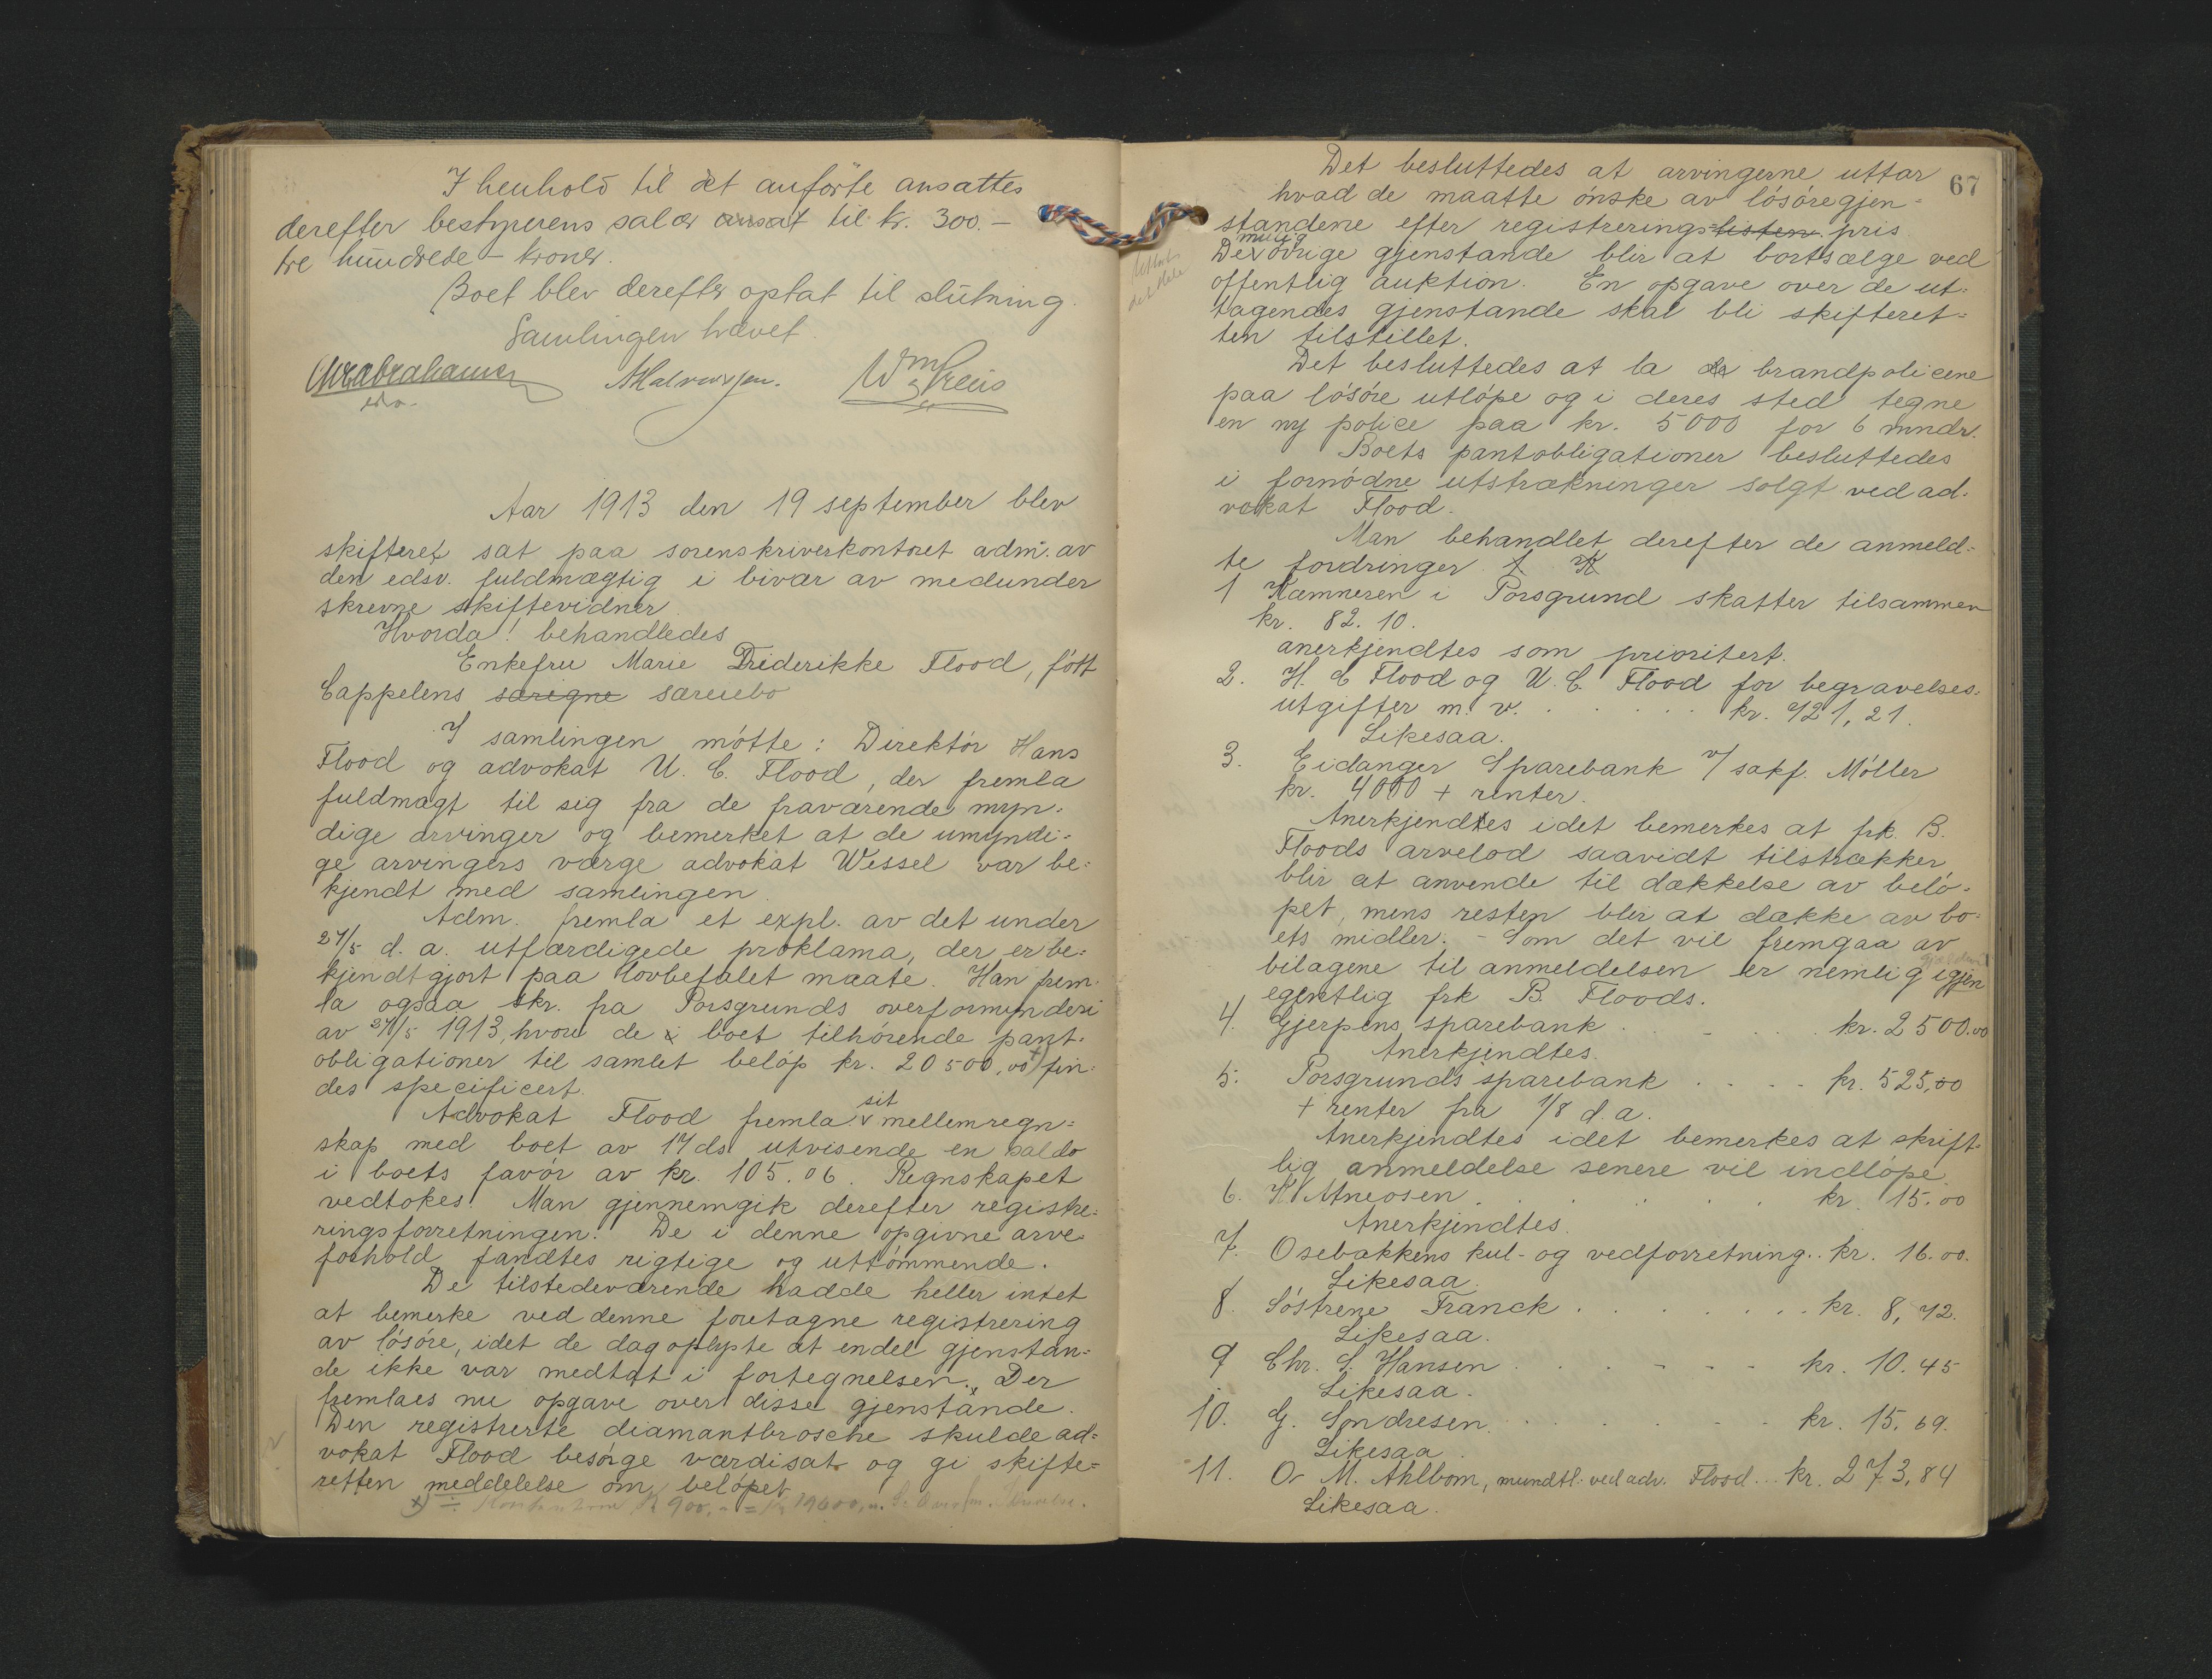 I henhold til det anførte ansattes
derefter bestyrerens salær ansat til kr. 300.-
tre hundrede - kroner.
Boet blev derefter optat til slutning.
Samlingen hævet.
Abrahamsen
Aar 1913 den 19 september blev
skifteret sat paa sorenskriverkontoret adm. av
den edsv. fuldmægtig i bivær av medunder
skrevne skiftevidner
Hvorda! behandledes
Enkefru Marie Driderikke Flood, født
Cappelens særigne særuebo
I samlingen møtte: Direktør Hans
Flood og advokat U. C. Flood, der fremla
fuldmagt til sig fra de fraværende myn-
dige arvinger og bemerket at de umyndi-
ge arvingers værge advokat Wessel var be-
kjendt med samlingen
Adm. fremla et expl. av det under
27/5 d. a. utfærdigede proklama, der er be-
kjendtgjort paa lovbefalet maate. Han frem-
la ogsaa skr. fra Porsgrunds overformynderi
av 27/5 1913, hvori de i boet tilhørende pant-
obligationer til samlet beløp kr. 20500,00 +) fin-
des specificert.
Advokat Flood fremla sit mellemregn-
skap med boet av 17 ds. utvisende en saldo
i boets favør av kr. 105.06. Regnskapet
vedtokes. Man gjennemgik derefter registre-
ringsforretningen. De i denne opgivne arve-
forhold fandtes rigtige og uttømmende.
De tilstedeværende hadde heller intet
at bemerke ved denne foretagne registrering
av løsøre, idet de dog oplyste at endel gjenstan-
de ikke var medtat i fortegnelsen. Der
fremlaes nu opgave over disse gjenstande.
Den registrerte diamantbrosche skulde ad-
vokat Flood besørge værdisat og gi skifte-
retten meddelelse om beløpet
+) ÷ 900,- =
67
Det besluttedes at arvingerne uttar
hvad de maatte ønske av løsøregjen-
standene efter registreringslisten pris
mulig
De øvrige gjenstande blir at bortsælge ved
offentlig auktion. En opgave over de ut-
tagendes gjenstande skal bli skifteret-
ten tilstillet.
Det besluttedes at la de brandpolicene
paa løsøre utløpe og i deres sted tegne
en ny police paa kr. 5000 for 6 mndr.
Boets pantobligationer besluttedes
i fornødne utstrækninger solgt ved ad-
vokat Flood.
Man behandlet derefter de anmeld-
te fordringer. 1 K
1 Kæmneren i Porsgrund skatter tilsammen
kr. 82.10.
anerkjendtes som prioritert.
2. H. C Flood og U. C. Flood for begravelses-
utgifter m. v. . . . . . kr. 721,21.
Likesaa.
3. Eidanger Sparebank v/ sakf. Møller
kr. 4000 + renter.
Anerkjendtes idet bemerkes at frk. B.
Floods arvelod saavidt tilstrækker
blir at anvende til dækkelse av belø-
pet, mens resten blir at dække av bo-
ets midler. - Som det vil fremgaa av
bilagene til anmeldelsen er nemlig igjen
egentlig frk B. Floods.
4. Gjerpens sparebank . . . . kr. 2500.00
Anerkjendtes.
5. Porsgrunds sparebank . . . . kr. 525,00
+ renter fra 1/8 d. a.
Anerkjendtes idet bemerkes at skrift-
lig anmeldelse senere vil indløpe
6. K. . . . . . kr. 15.00
Anerkjendtes.
7. Osebakkens kul- og vedforretning.. kr. 16.00.
Likesaa.
8. Søstrene Franck . . . . . . . kr. 8,72.
Likesaa.
9 Chr. S. Hansen . . . . . . kr. 10.45
Likesaa.
10. G. Sondresen . . . . . . kr. 15.69.
Likesaa
11. O. M. Ahlbom, mundtl. ved adv. Flood... kr. 273,84
Likesaa.